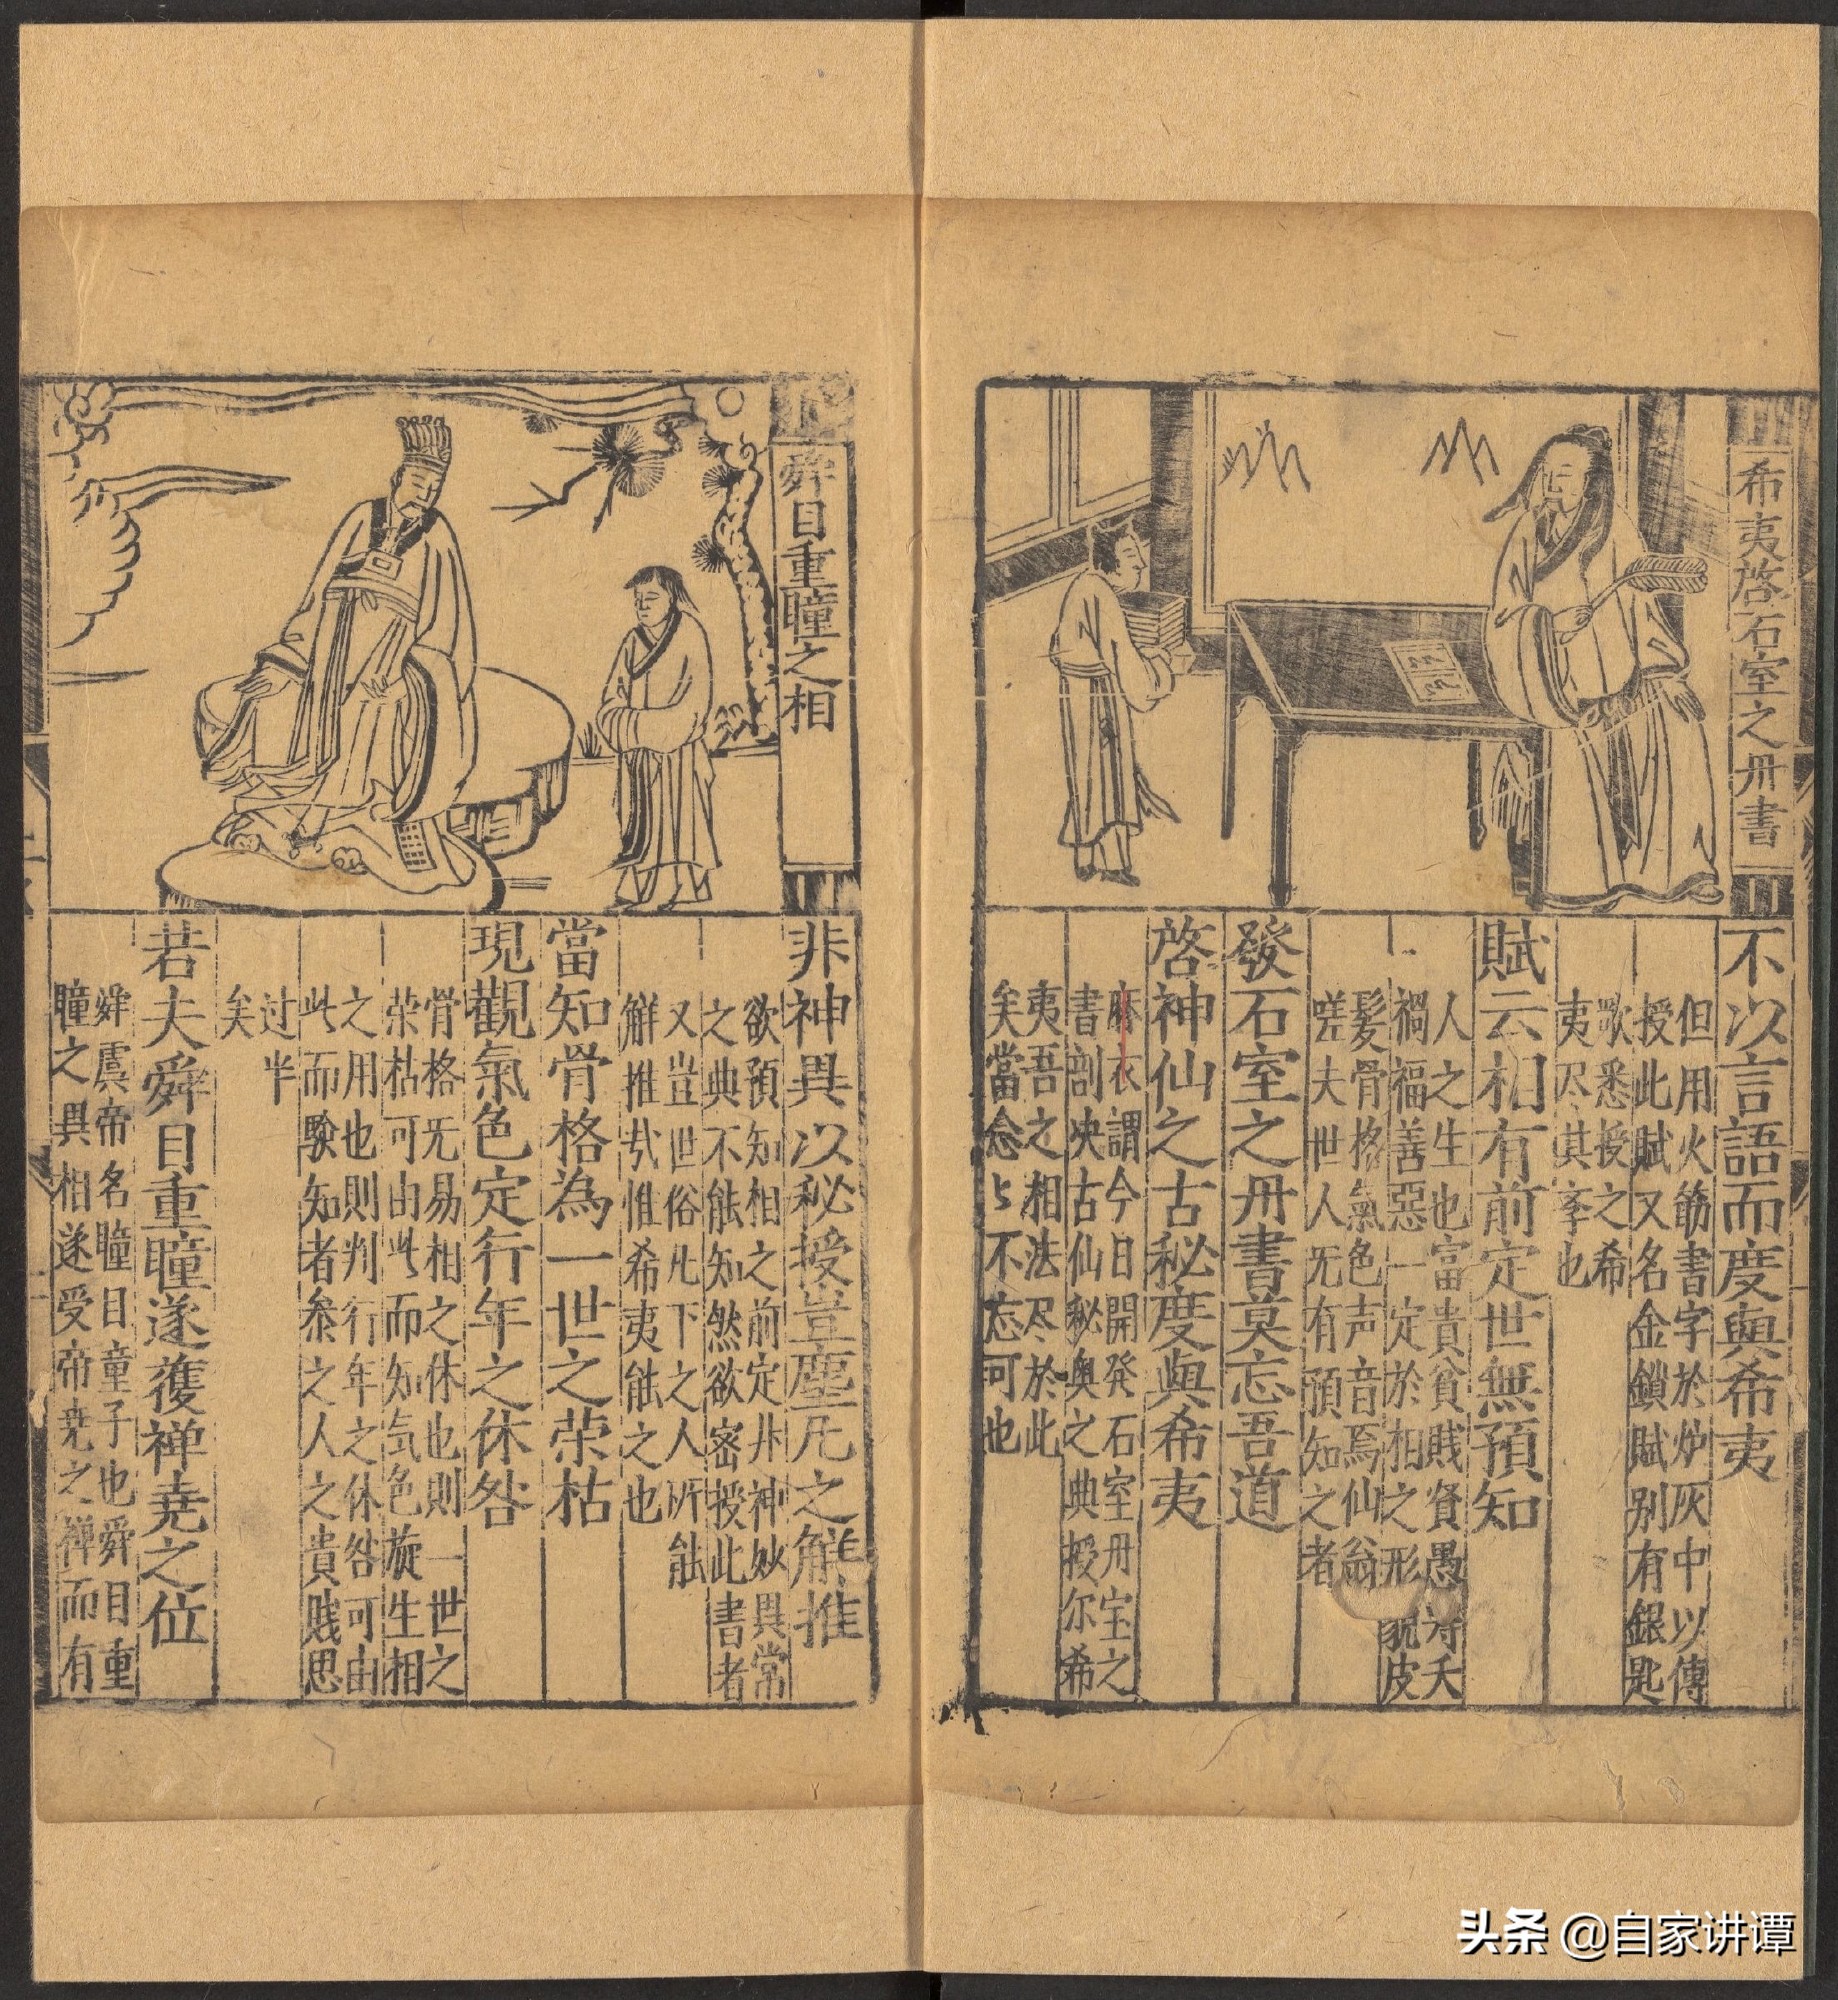 希夷啓石室之丹書
不以言語而度與希夷
但用火筯書字於炉灰中以傳
授此賦又名金鎖賦别有銀匙
歌悉授之希
夷尽其李也
賦云相有前定世無預知
人之生也富貴貧賎賢愚寿夭
禍福善惡一定於相之形貌皮
髮骨格氣色声音焉仙翁
嗟夫世人旡有預知之者
發石室之丹書莫忘吾道
啓神仙之古秘度與希夷
麻衣謂今日開発石室丹宝之
書剖决古仙秘奥之典授尔希
夷吾之相法尽於此
矣當念々不忘可也
舜目重瞳之相
非神異以秘授豈塵凢之觧推
欲預知相之前定非神妙異常
之典不能知然欲密授此書者
又豈世俗凢下之人所能
觧推㢤惟希夷能之也
當知骨格為一世之荣枯
現觀氣色定行年之休咎
骨格旡易相之休也則一世之
荣枯可由此而知気色旋生相
之用也則判行年之休咎可由
此而験知者叅之人之貴賎思
过半
矣
若夫舜目重瞳遂獲禅尭之位
舜虞帝名瞳目童子也舜目重
瞳之異相遂受帝尭之禅而有
头条 @自家讲谭